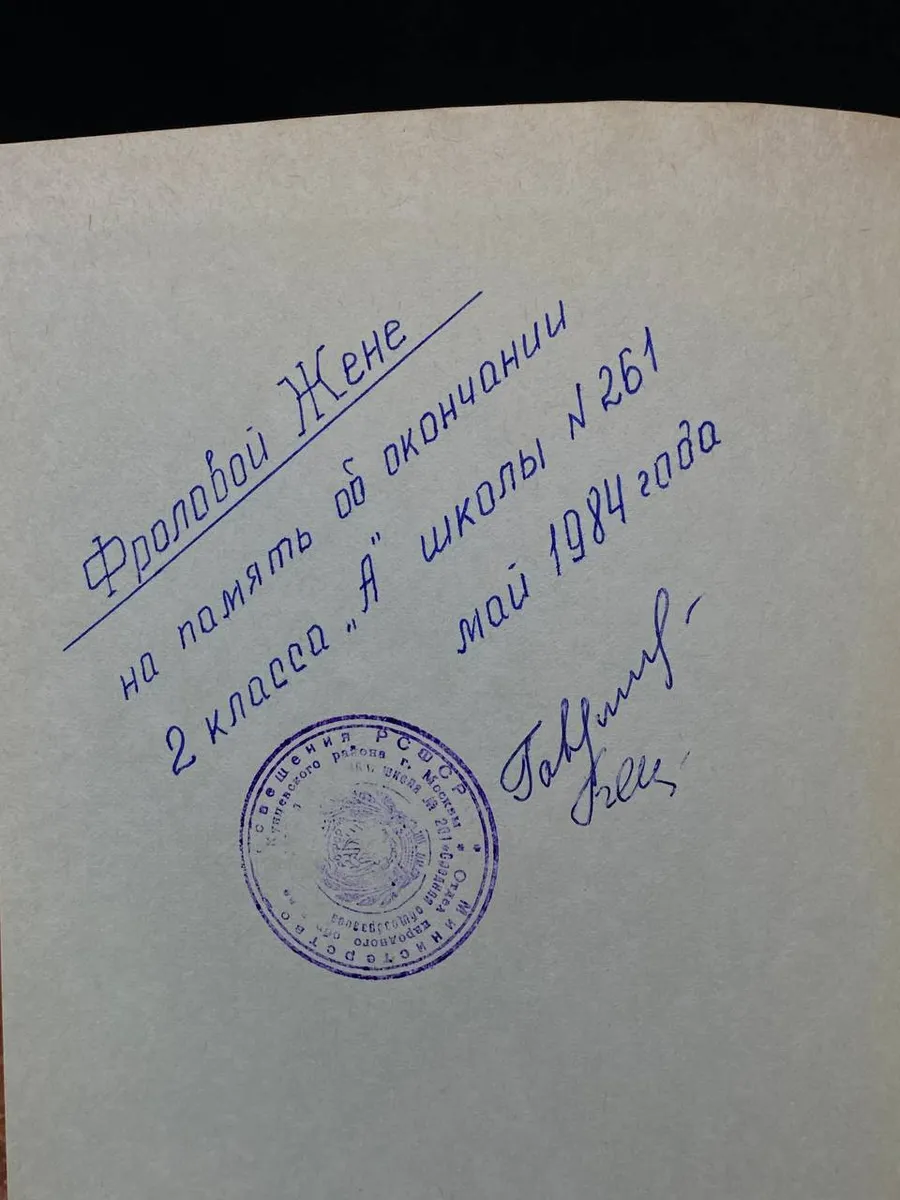 Фроловой Жене
на память об окончании
2 класса „А" школы N 261
май 1984 года
Министерство просвещения РСФСР
Отдел народного
района г. Москвы
школа № 261
Средняя